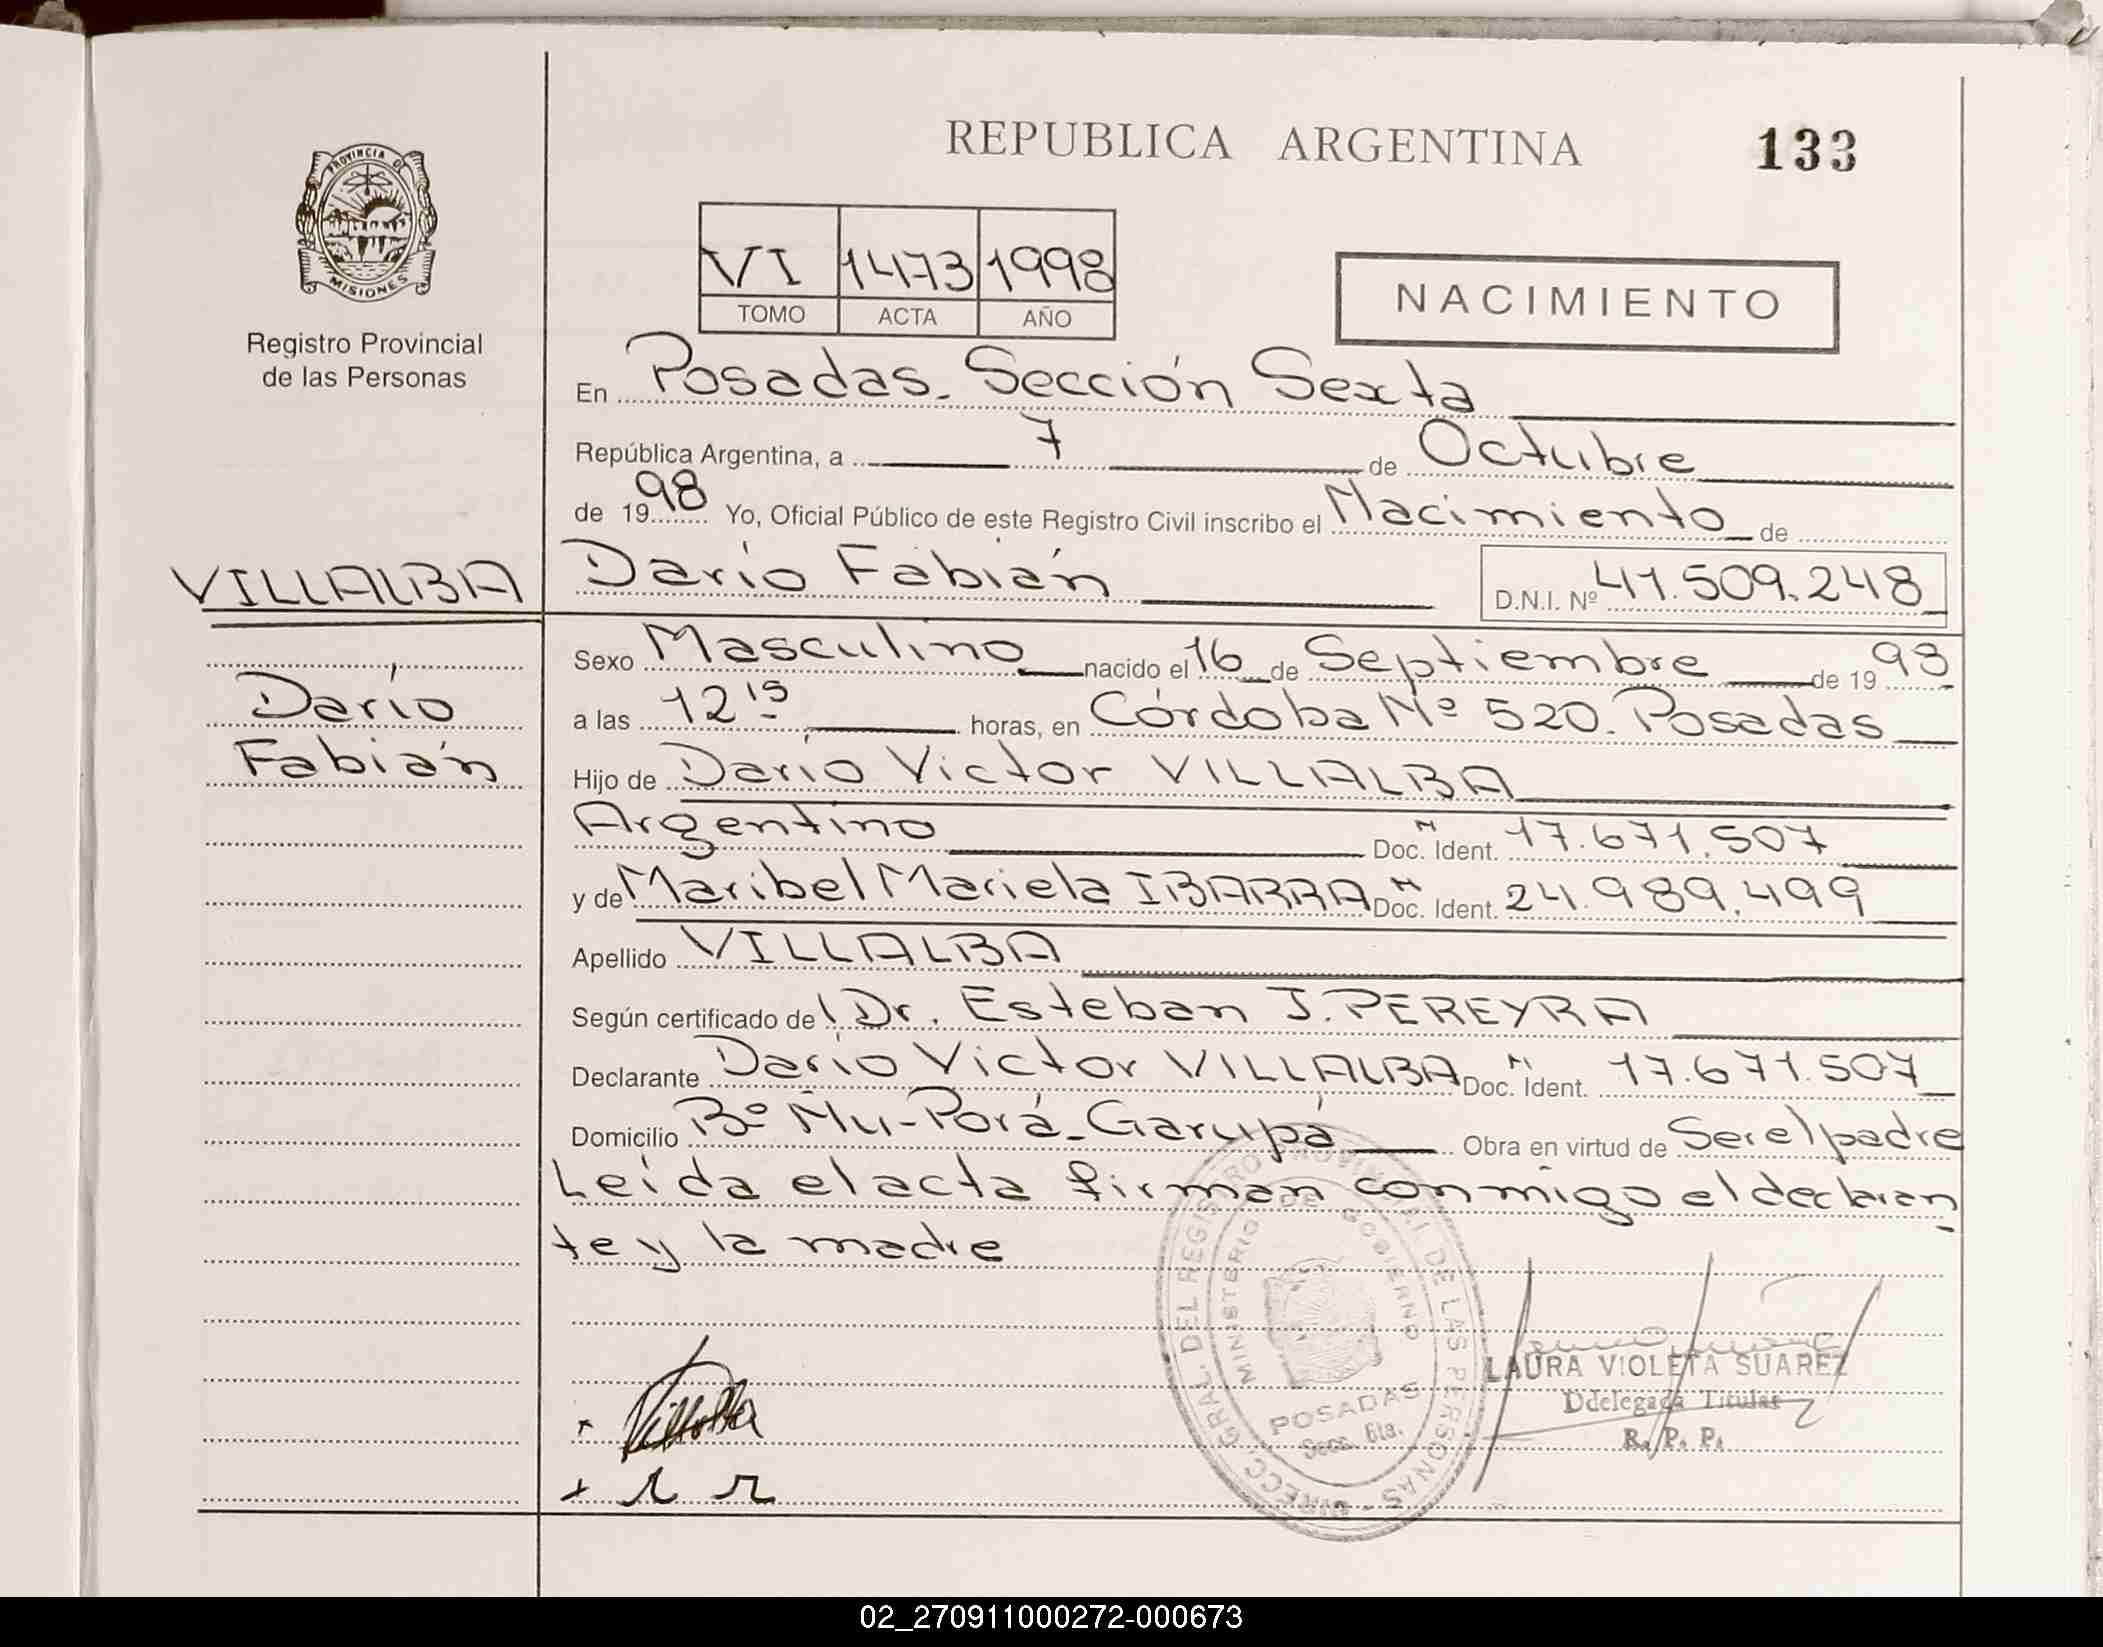 PROVINCIA DE
MISIONES
Registro Provincial
de las Personas
REPUBLICA ARGENTINA 133
VI 1473 1998
TOMO ACTA AÑO
NACIMIENTO
En Posadas. Sección Sexta
República Argentina, a 7 de Octubre
de 1998 Yo, Oficial Público de este Registro Civil inscribo el Nacimiento de
VILLALBA Darío Fabián D.N.I. Nº 41.509.248
Sexo Masculino nacido el 16 de Septiembre de 1998
Darío a las 12 15 horas, en Córdoba Nº 520. Posadas
Fabián Hijo de Darío Victor VILLALBA
Argentino Doc. Ident. 17.671.507
y de Maribel Mariela IBARRA Doc. Ident. 24.989.499
Apellido VILLALBA
Según certificado de l Dr. Esteban J. PEREYRA
Declarante Darío Victor VILLALBA Doc. Ident. 17.671.507
Domicilio Bº Ñu-Porá-Garupá Obra en virtud de Ser el padre
Leída el acta firman conmigo el declaran
te y la madre
DIRECC. GRAL. DEL REGISTRO PROVINCIAL DE LAS PERSONAS
MINISTERIO DE GOBIERNO
POSADAS
Secc. 6ta.
LAURA VIOLETA SUAREZ
Ddelegada Titular
R. P. P.
Villalba
02_270911000272-000673